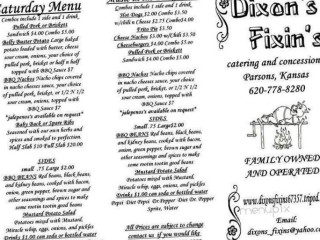 Saturday Menu
Combos include 1 side and 1 drink,
Pulled Pork or Brisket
Sandwich $4.00 Combo $5.50
Belly Buster Potato Large baked
potato loaded with butter, cheese
sour cream, onions, your choice of
pulled pork, brisket or half n half
topped with BBQ Sauce $7
BBQ Nachos Nacho chips covered
in nacho cheese sauce, your choice
of pulled pork, brisket, or 1/2 N 1/2
sour cream, onions, topped
with BBQ Sauce $7
"jalepenos available on request"
Baby Back or Spare Ribs
Seasoned with our own herbs and
spices and smoked to perfection.
Half Slab $10 Full Slab $20.00
SIDES
small .75 Large $2.00
BBQ BEANS Red beans, black beans,
and kidney beans, cooked with bacon,
onion, green pepper, brown sugar and
other seasonings and spices to make
some rootin tootin good beans
Mustard Potato Salad
Potatoes mixed with Mustard,
Miracle whip, eggs, onions, and pickles
Drinks $1.00 can soda or bottled water
Combos include 1 side and 1 drink,
Hot Dogs $2.00 Combo $3.50
w/chili n cheese $2.75 Combo $4.00
Frito Pie $3.50
Cheese Nachos $3.00 w/Chili $3.50
Cheeseburgers $4.00 Combo $5.50
Pulled Pork or Brisket
Sandwich $4.00 Combo $5.50
BBQ Nachos Nacho chips covered
in nacho cheese sauce, your choice
of pulled pork, brisket, or 1/2 N 1/2
sour cream, onions, topped
with BBQ Sauce $7
"jalepenos available on request"
SIDES
Small .75 Large $2.00
BBQ BEANS Red beans, black beans,
and kidney beans, cooked with bacon,
onion, green pepper, brown sugar and
other seasonings and spices to make
some rootin tootin good beans
Mustard Potato Salad
Potatoes mixed with Mustard,
Miracle whip, eggs, onions, and pickles
Drinks $1.00 can soda or bottled water
Pepsi Diet Pepsi Dr. Pepper Diet Dr. Pepper
Sprite, Water
All Prices are subject to change
contact us if you would like
Dixon's
Fixin's
catering and concession
Parsons, Kansas
620-778-8280
FAMILY OWNED
AND OPERATED
www.dixonsfixins67357.tripod.
Email:
dixons_fixins@yahoo.